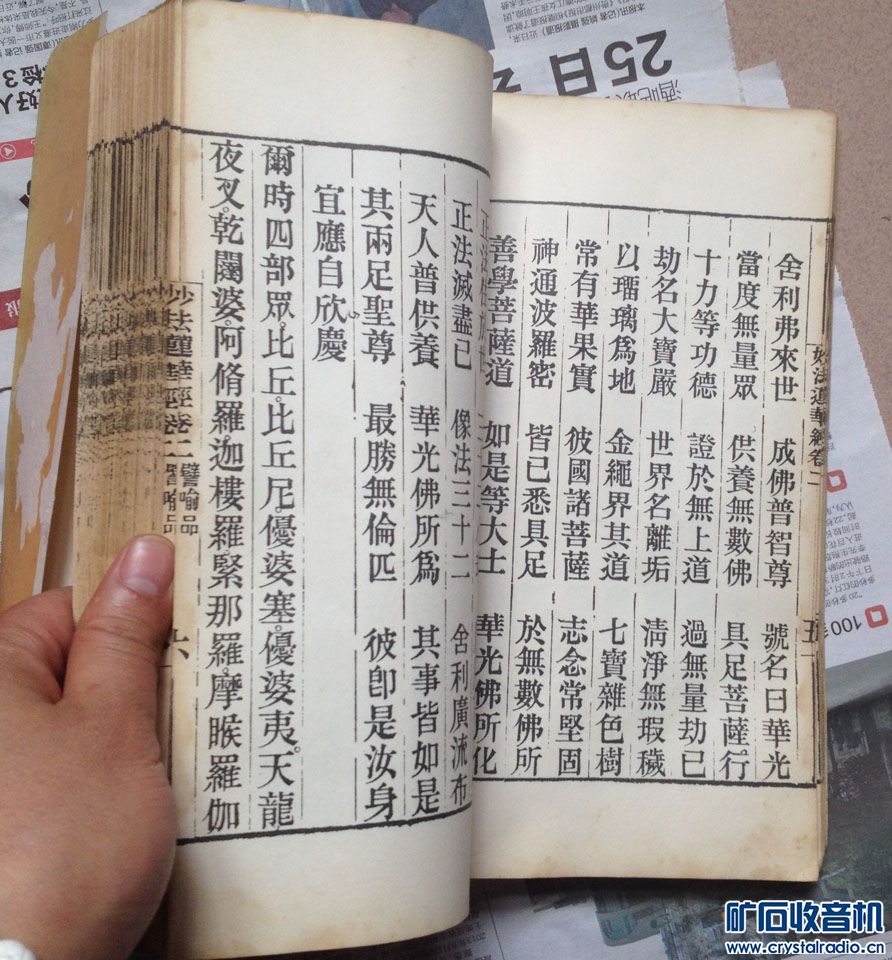 舍利弗來世 成佛普智尊 號名曰華光
當度無量眾 供養無數佛 具足菩薩行
十力等功德 證於無上道 過無量劫已
劫名大寶嚴 世界名離垢 清淨無瑕穢
以瑠璃爲地 金繩界其道 七寶雜色樹
常有華果實 彼國諸菩薩 志念常堅固
神通波羅密 皆已悉具足 於無數佛所
善學菩薩道 如是等大士 華光佛所化
正法滅盡已 像法三十二 舍利廣流布
天人普供養 華光佛所爲 其事皆如是
其兩足聖尊 最勝無倫匹 彼卽是汝身
宜應自欣慶
爾時四部眾。比丘。比丘尼。優婆塞。優婆夷。天龍
夜叉。乾闥婆。阿脩羅。迦樓羅。緊那羅。摩睺羅伽
妙法蓮華經卷二 譬喻品 六
妙法蓮華經卷二
五
25日
100
矿石收音机
www.crystalradio.cn